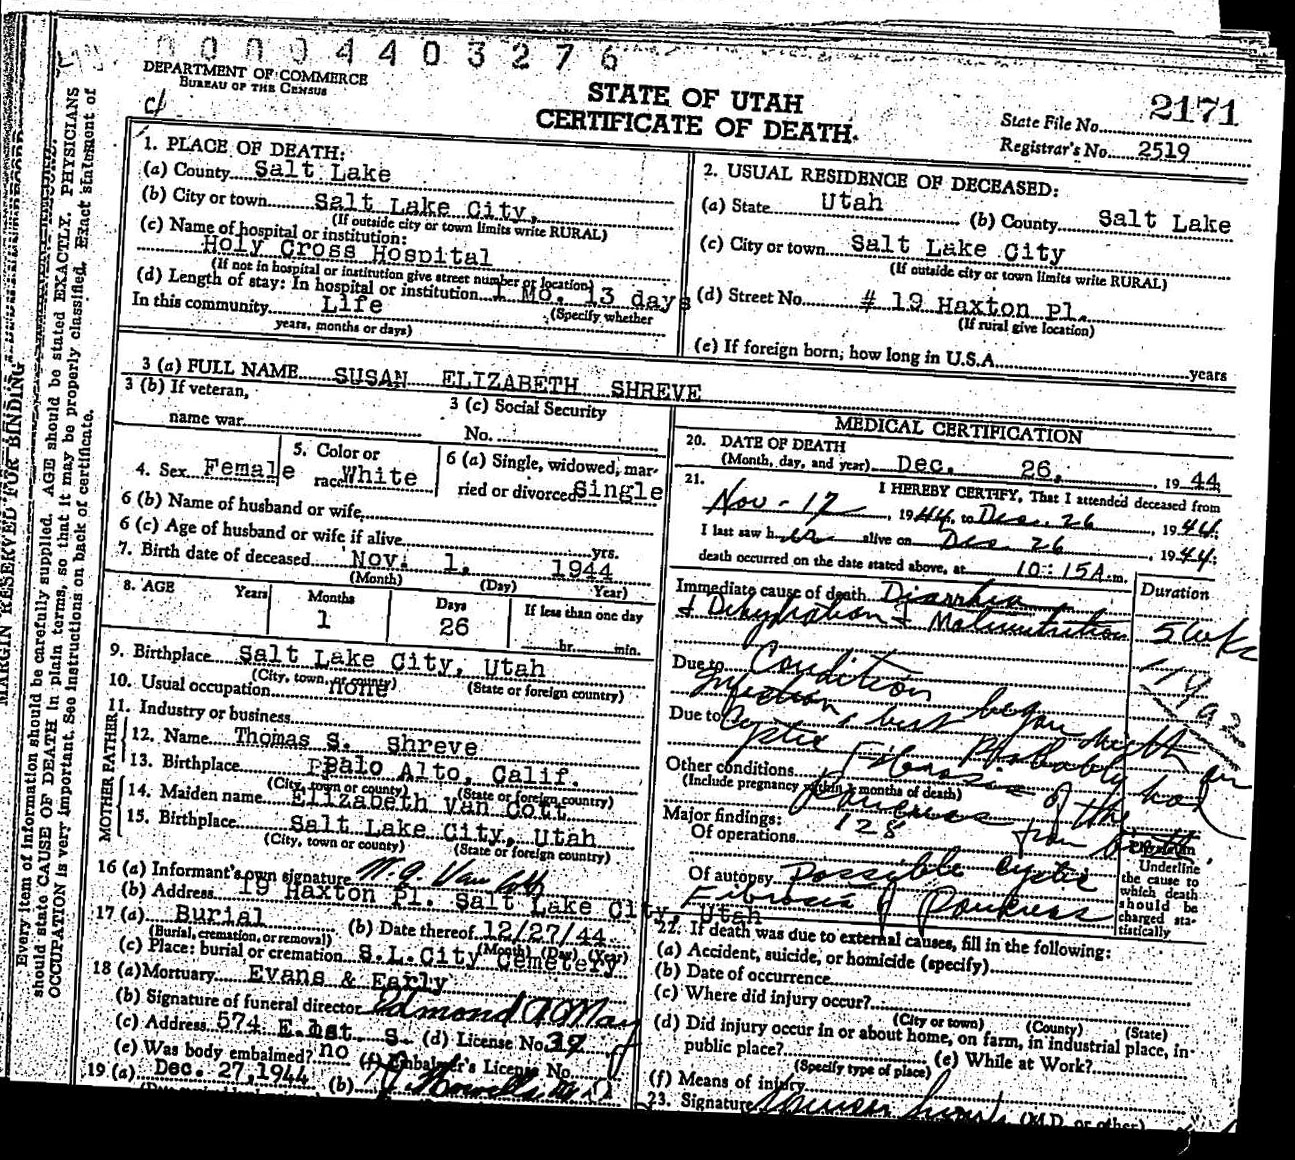 0000440 3276
DEPARTMENT OF COMMERCE
BUREAU OF THE CENSUS
c/
STATE OF UTAH
CERTIFICATE OF DEATH.
State File No. 2171
Registrar's No. 2519
MARGIN RESERVED FOR BINDING
Every item of information should be carefully supplied. AGE should be stated EXACTLY. PHYSICIANS
should state CAUSE OF DEATH in plain terms, so that it may be properly classified. Exact statement of
OCCUPATION is very important. See instructions on back of certificate.
1. PLACE OF DEATH:
(a) County Salt Lake
(b) City or town Salt Lake City,
(If outside city or town limits write RURAL)
(c) Name of hospital or institution:
Holy Cross Hospital
(If not in hospital or institution give street number or location)
(d) Length of stay: In hospital or institution 1 Mo. 13 days
In this community Life (Specify whether
years, months or days)
2. USUAL RESIDENCE OF DECEASED:
(a) State Utah (b) County Salt Lake
(c) City or town Salt Lake City
(If outside city or town limits write RURAL)
(d) Street No. # 19 Haxton Pl.
(If rural give location)
(e) If foreign born, how long in U.S.A. years
3 (a) FULL NAME SUSAN ELIZABETH SHREVE
3 (b) If veteran,
name war
3 (c) Social Security
No.
4. Sex Female
5. Color or
race White
6 (a) Single, widowed, mar-
ried or divorced Single
6 (b) Name of husband or wife
6 (c) Age of husband or wife if alive yrs.
7. Birth date of deceased Nov. 1, 1944
(Month) (Day) Year)
8. AGE Years Months Days If less than one day
1 26 hr. min.
9. Birthplace Salt Lake City, Utah
(City, town, or county) (State or foreign country)
10. Usual occupation none
11. Industry or business
FATHER
12. Name Thomas S. Shreve
13. Birthplace Palo Alto, Calif.
(City, town or county) (State or foreign country)
MOTHER
14. Maiden name Elizabeth Van Cott
15. Birthplace Salt Lake City, Utah
(City, town or county) (State or foreign country)
16 (a) Informant's own signature W. G. Van Cott
(b) Address 19 Haxton Pl. Salt Lake City, Utah
17 (a) Burial (b) Date thereof 12/27/44
(Burial, cremation, or removal) (Month) (Day) (Year)
(c) Place: burial or cremation S.L.City Cemetery
18 (a) Mortuary Evans & Early
(b) Signature of funeral director Edmond A May
(c) Address 574 E. 1st S. (d) License No. 39
(e) Was body embalmed? no (f) Embalmer's License No.
19 (a) Dec. 27, 1944 (b)
MEDICAL CERTIFICATION
20. DATE OF DEATH
(Month, day, and year) Dec. 26, 1944
21. I HEREBY CERTIFY, That I attended deceased from
Nov - 17, 1944, to Dec. 26, 1944.
I last saw her alive on Dec 26, 1944.
death occurred on the date stated above, at 10:15A m.
Immediate cause of death Diarrhea Duration
& Dehydration & Malnutrition 5 wks
Due to Condition began with an
infection, but probably had
Due to Cystic Fibrosis of the
Other conditions Pancreas from birth.
(Include pregnancy within 3 months of death)
Major findings: 128
Of operations
Of autopsy Possible Cystic
Fibrosis of Pancreas
Underline
the cause to
which death
should be
charged sta-
tistically
22. If death was due to external causes, fill in the following:
(a) Accident, suicide, or homicide (specify)
(b) Date of occurrence
(c) Where did injury occur?
(City or town) (County) (State)
(d) Did injury occur in or about home, on farm, in industrial place, in
public place? (e) While at Work?
(Specify type of place)
(f) Means of injury
23. Signature (M.D. or other)